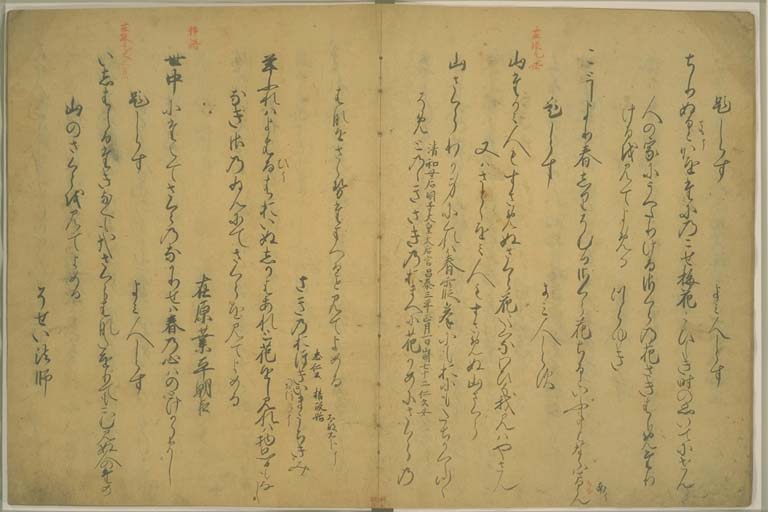 題しらす　よみ人しらす
ちりぬともかをたにのこせ梅花こひしき時のおもひいてにせん
人の家にうへたりけるさくらの花さきはしめたり
けるを見てよめる　つらゆき
ことしより春しりそむるさくら花ちるといふ事はならはさらなん
題しらす　よみ人しらす
山たかみ人もすさめぬさくら花いたくなわひそ我みはやさん
又はさとゝをみ人もすさめぬ山さくら
山さくらわか見にくれは春霞峯にもおにもたちかくしつゝ
清和母后明子太皇太后宮昌泰三年正月
そめとのゝきさきのおまへに花かめにさくらの
はなをさゝせたまへるを見てよめる
さきのおほきおほいまうちきみ
忠仁公
年ふれはよはひはおいぬしかはあれと花をし見れは物思もなし
なきさの院にてさくらを見てよめる
在原業平朝臣
世中にたえてさくらのなかりせは春の心はのとけからまし
題しらす　よみ人しらす
いしはしるたきなくもかなさくら花たをりてもこん見ぬ人のため
山のさくらを見てよめる
そせい法師